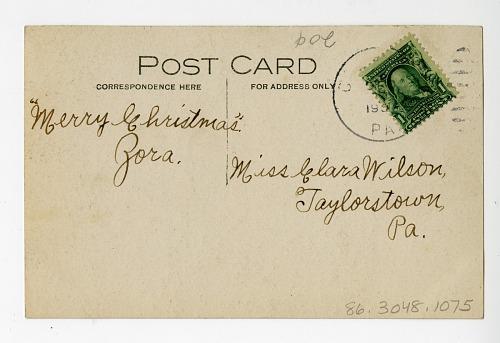 POST CARD
CORRESPONDENCE HERE
FOR ADDRESS ONLY
"Merry Christmas".
Zora.
Miss Clara Wilson,
Taylorstown,
Pa.
PA
86.3048.1075